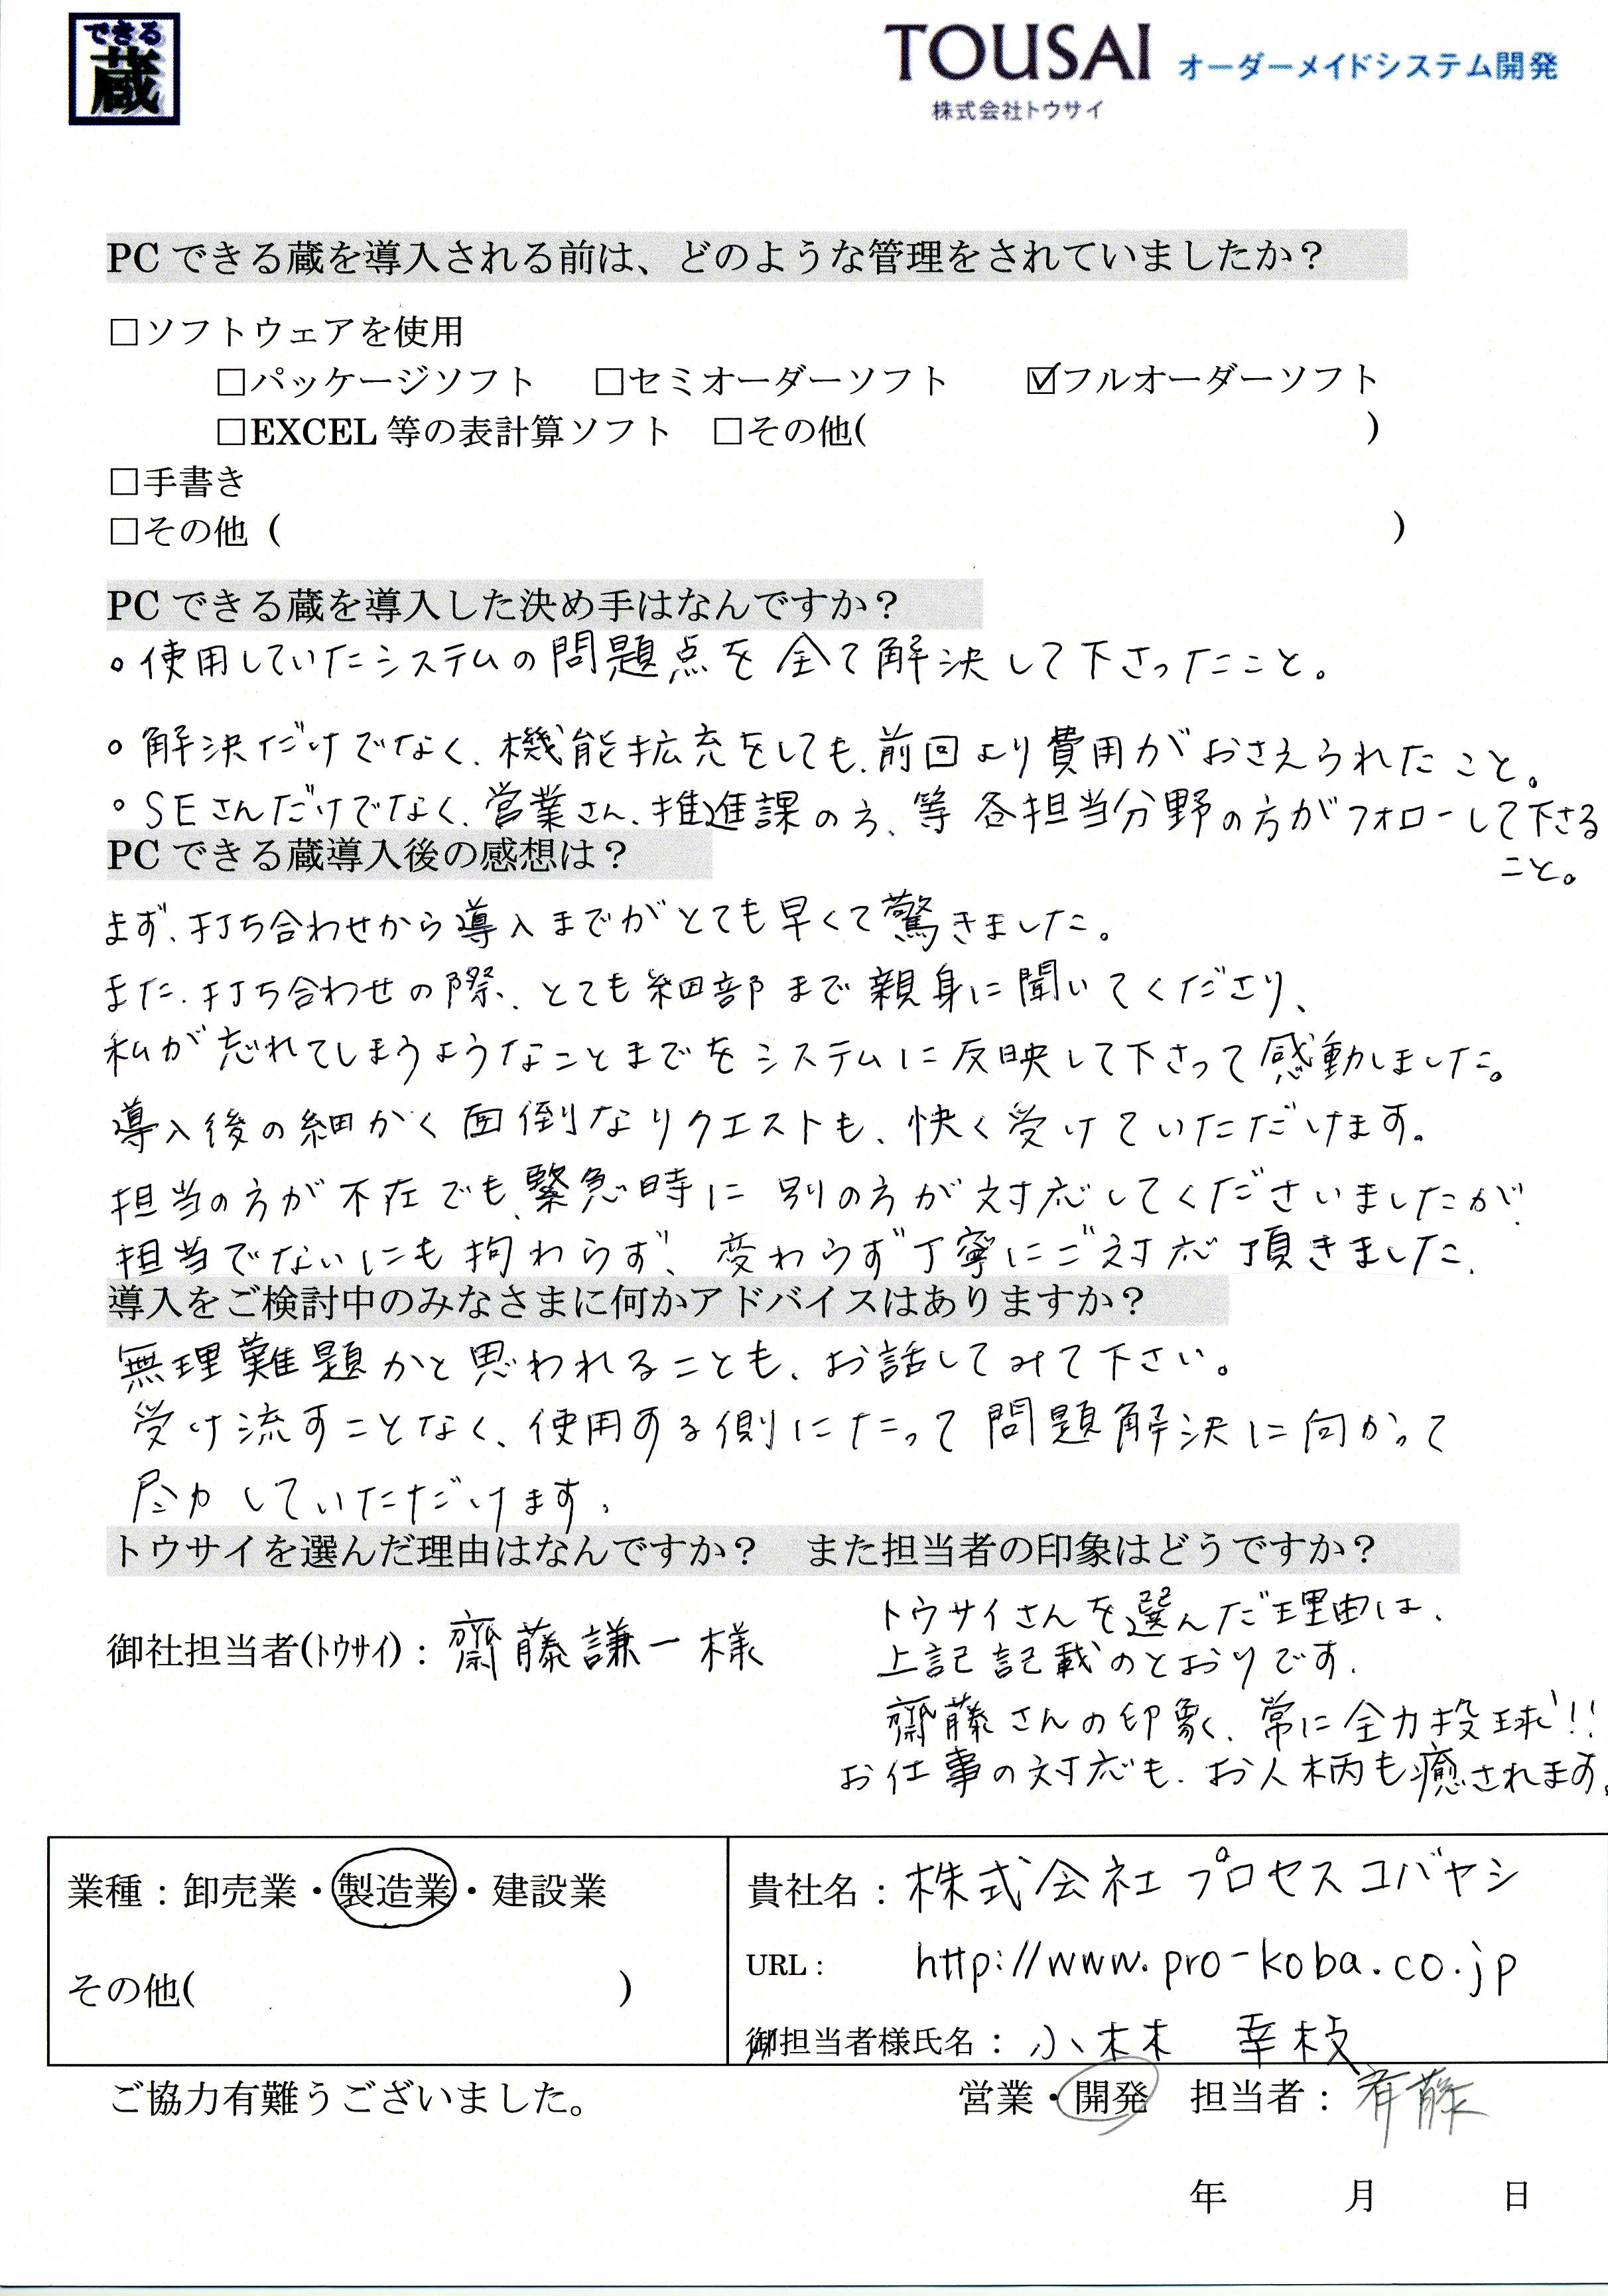 できる
蔵
TOUSAI オーダーメイドシステム開発
株式会社トウサイ
PCできる蔵を導入される前は、どのような管理をされていましたか？
□ソフトウェアを使用
□パッケージソフト □セミオーダーソフト ☑フルオーダーソフト
□EXCEL等の表計算ソフト □その他( )
□手書き
□その他（ ）
PCできる蔵を導入した決め手はなんですか？
○使用していたシステムの問題点を全て解決して下さったこと。
○解決だけでなく、機能拡充をしても、前回より費用がおさえられたこと。
○SEさんだけでなく、営業さん、推進課の方、等各担当分野の方がフォローして下さる
こと。
PCできる蔵導入後の感想は？
まず、打ち合わせから導入までがとても早くて驚きました。
また、打ち合わせの際、とても細部まで親身に聞いてくださり、
私が忘れてしまうようなことまでをシステムに反映して下さって感動しました。
導入後の細かく面倒なリクエストも、快く受けていただけます。
担当の方が不在でも、緊急時に別の方が対応してくださいましたが、
担当でないにも拘わらず、変わらず丁寧にご対応頂きました。
導入をご検討中のみなさまに何かアドバイスはありますか？
無理難題かと思われることも、お話してみて下さい。
受け流すことなく、使用する側にたって問題解決に向かって
尽力していただけます。
トウサイを選んだ理由はなんですか？ また担当者の印象はどうですか？
御社担当者(ﾄｳｻｲ)：齋藤謙一様
トウサイさんを選んだ理由は、
上記記載のとおりです。
齋藤さんの印象、常に全力投球!!
お仕事の対応も、お人柄も癒されます。
業種：卸売業・製造業・建設業
その他( )
貴社名：株式会社プロセスコバヤシ
URL： http://www.pro-koba.co.jp
御担当者様氏名：小林 幸枝
ご協力有難うございました。
営業・開発 担当者：斉藤
年 月 日